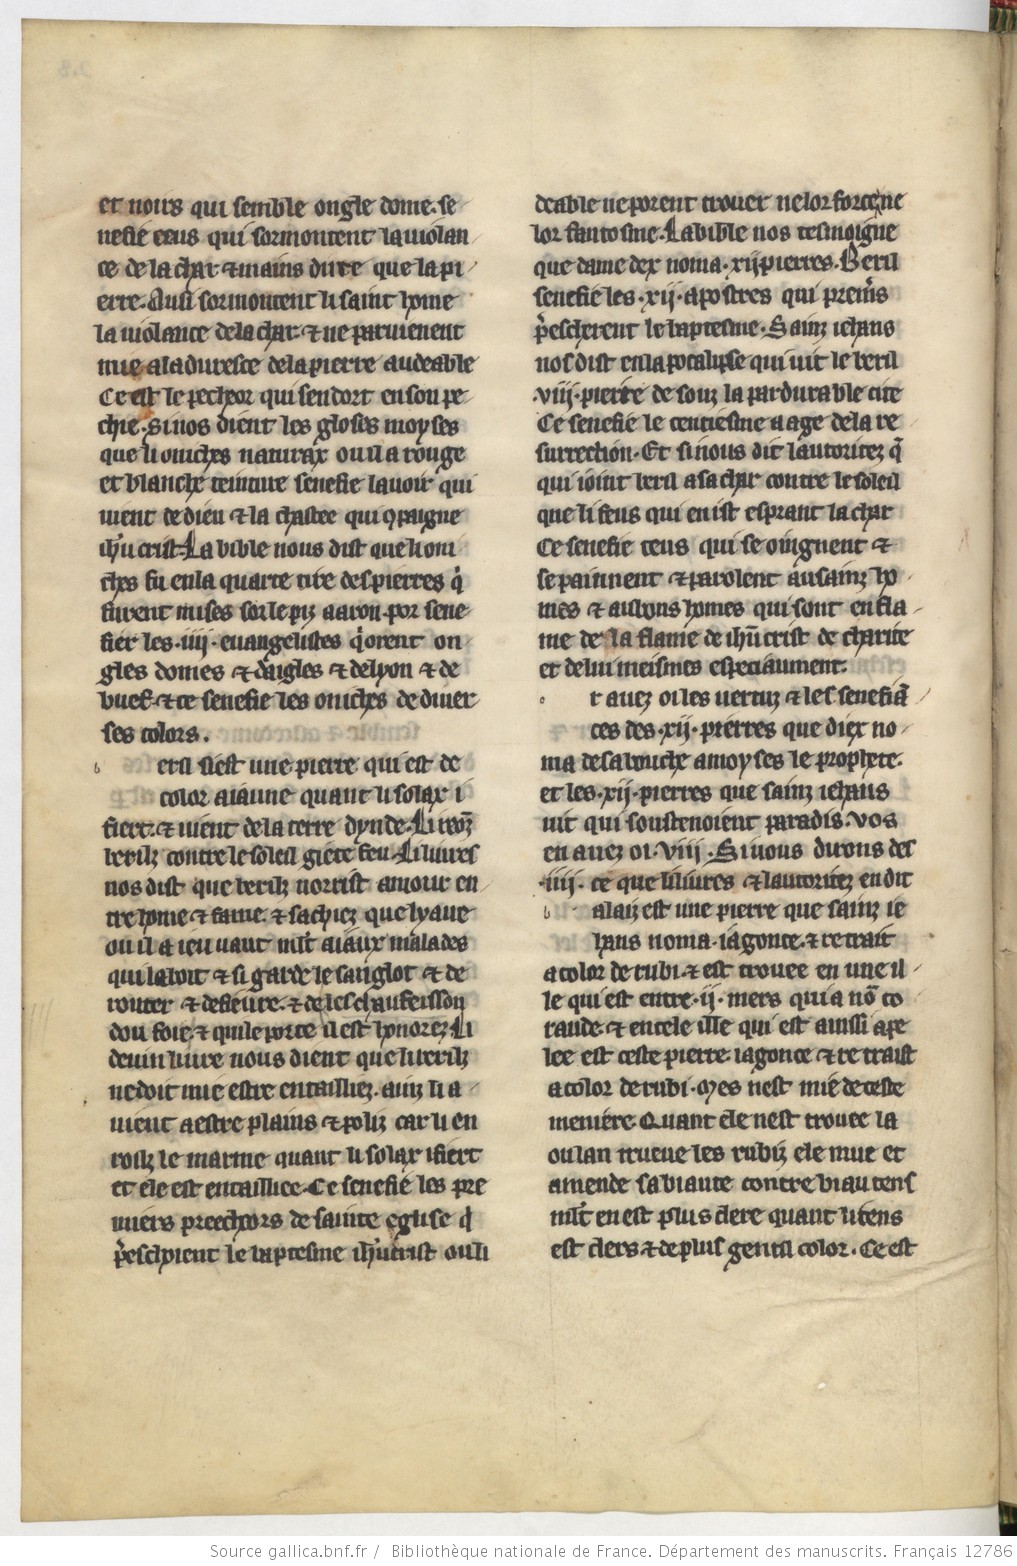 et noirs qui semble ongle dome. se
nefie ceus qui sormontent la uiolan
ce de la char ⁊ mains dure que la pi
erre. Ausi sormontent li saint home
la uiolance de la char. ⁊ ne paruienent
mie a la duresce de la pierre au deable
Ce est le pecheor qui sendort en son pe
chie. Si nos dient les gloses moyses
que li oniches naturax ou il a rouge
et blanche teinture senefie lauoir qui
uient de dieu ⁊ la chastee qui ꝯpaigne
ihu crist. La bible nous dist que li oni
ches fu en la quarte tire des pierres q̃
furent mises sor le piz aaron. por sene
fier les .iiij. euangelistes q̃ orent on
gles domes ⁊ daigles ⁊ de lyon ⁊ de
buef. ⁊ ce senefie les oniches de diuer
ses colors.
b eril si est une pierre qui est de
color aiaune quant li solax i
fiert. ⁊ uient de la terre dynde. Li reonz
berilz contre le soleil giete feu. Li liures
nos dist que berilz norrist amour en
tre home ⁊ fame. ⁊ sachiez que lyaue
ou il a ieu uaut mlt aiaux malades
qui la boit ⁊ si garde le sanglot ⁊ de
router ⁊ de fieure. ⁊ de leschaufeison
dou foie. ⁊ qui le porte il est honorez. Li
deuin liure nous dient que li berilz
ne doit mie estre entailliez. ainz li a
uient a estre plains ⁊ poliz car li en
rosiz le marme quant li solax i fiert
et ele est entailliee. Ce senefie les pre
miers preecheors de sainte eglise q̃
p̃eschoient le baptesme ihu crist ou li
deable ne porent trouer ne lor force ne
lor fantosme. La bible nos tesmoigne
que dame dex noma .xij. pierres. Beril
senefie les .xij. apostres qui premˢs
p̃escherent le baptesme. Sainz iehans
nos dist en lapocalipse qui uit le beril
.viij. pierre de souz la pardurable cite
Ce senefie le centiesme aage de la re
surrection. Et si nous dit lautoritez q̃
qui ioint beril a sa char contre le soleil
que li feus qui en ist esprant la char
Ce senefie ceus qui se oignent ⁊
se painnent ⁊ parolent au sainz ho
mes ⁊ as bons homes qui sont enfla
me de la flame de ihu crist de charite
et de lui meismes especiaument.
e r auez oi les uertuz ⁊ les senefiã
ces des .xij. pierres que diex no
ma de sa bouche a moyses le prophete.
et les .xij. pierres que sainz iehans
uit qui soustenoient paradis. vos
en auez oi .viij. Si uous dirons des
.iiij. ce que li liures ⁊ lautoritez en dit
b alaiz est une pierre que sainz ie
hans noma iagonce. ⁊ retrait
a color de rubi. ⁊ est trouee en une il
le qui est entre .ij. mers qui a nõ co
raude. ⁊ en cele ille qui est ainssi ape
lee est ceste pierre iagonce ⁊ retraist
a color de rubi. Mes nest mie de ceste
meniere. Quant ele nest trouee la
ou lan trueue les rubiz ele mue et
amende sa biaute contre biau tens
mlt en est plus clere quant li tens
est clers ⁊ de plus gentil color. Ce est
Source gallica.bnf.fr / Bibliothèque nationale de France. Département des manuscrits. Français 12786